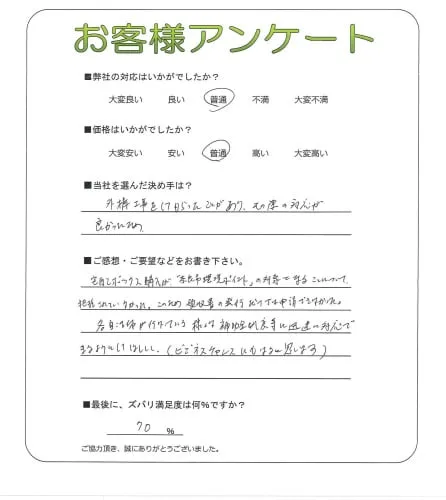 お客様アンケート
■弊社の対応はいかがでしたか？
大変良い 良い 普通 不満 大変不満
■価格はいかがでしたか？
大変安い 安い 普通 高い 大変高い
■当社を選んだ決め手は？
外構工事をして頂いたことがあり、その際の対応が
良かったため
■ご感想・ご要望などをお書き下さい。
宅配ボックス購入が「奈良市環境ポイント」の対象であることについて、
把握されていなかった。このため領収書の発行だけでは申請できなかった。
各自治体が行っている様々な補助金制度等に迅速に対応で
きるようにしてほしい。（ビジネスチャンスにもなると思います）
■最後に、ズバリ満足度は何％ですか？
70 ％
ご協力頂き、誠にありがとうございました。